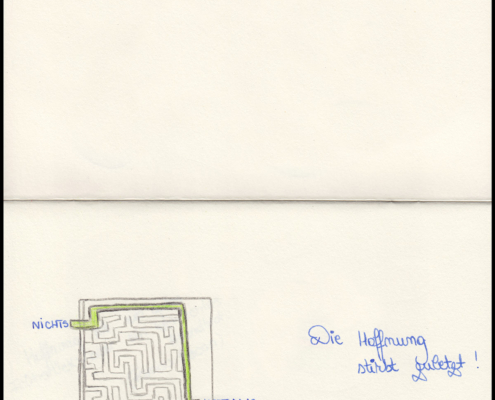 NICHTS
Die Hoffnung
stirbt zuletzt !